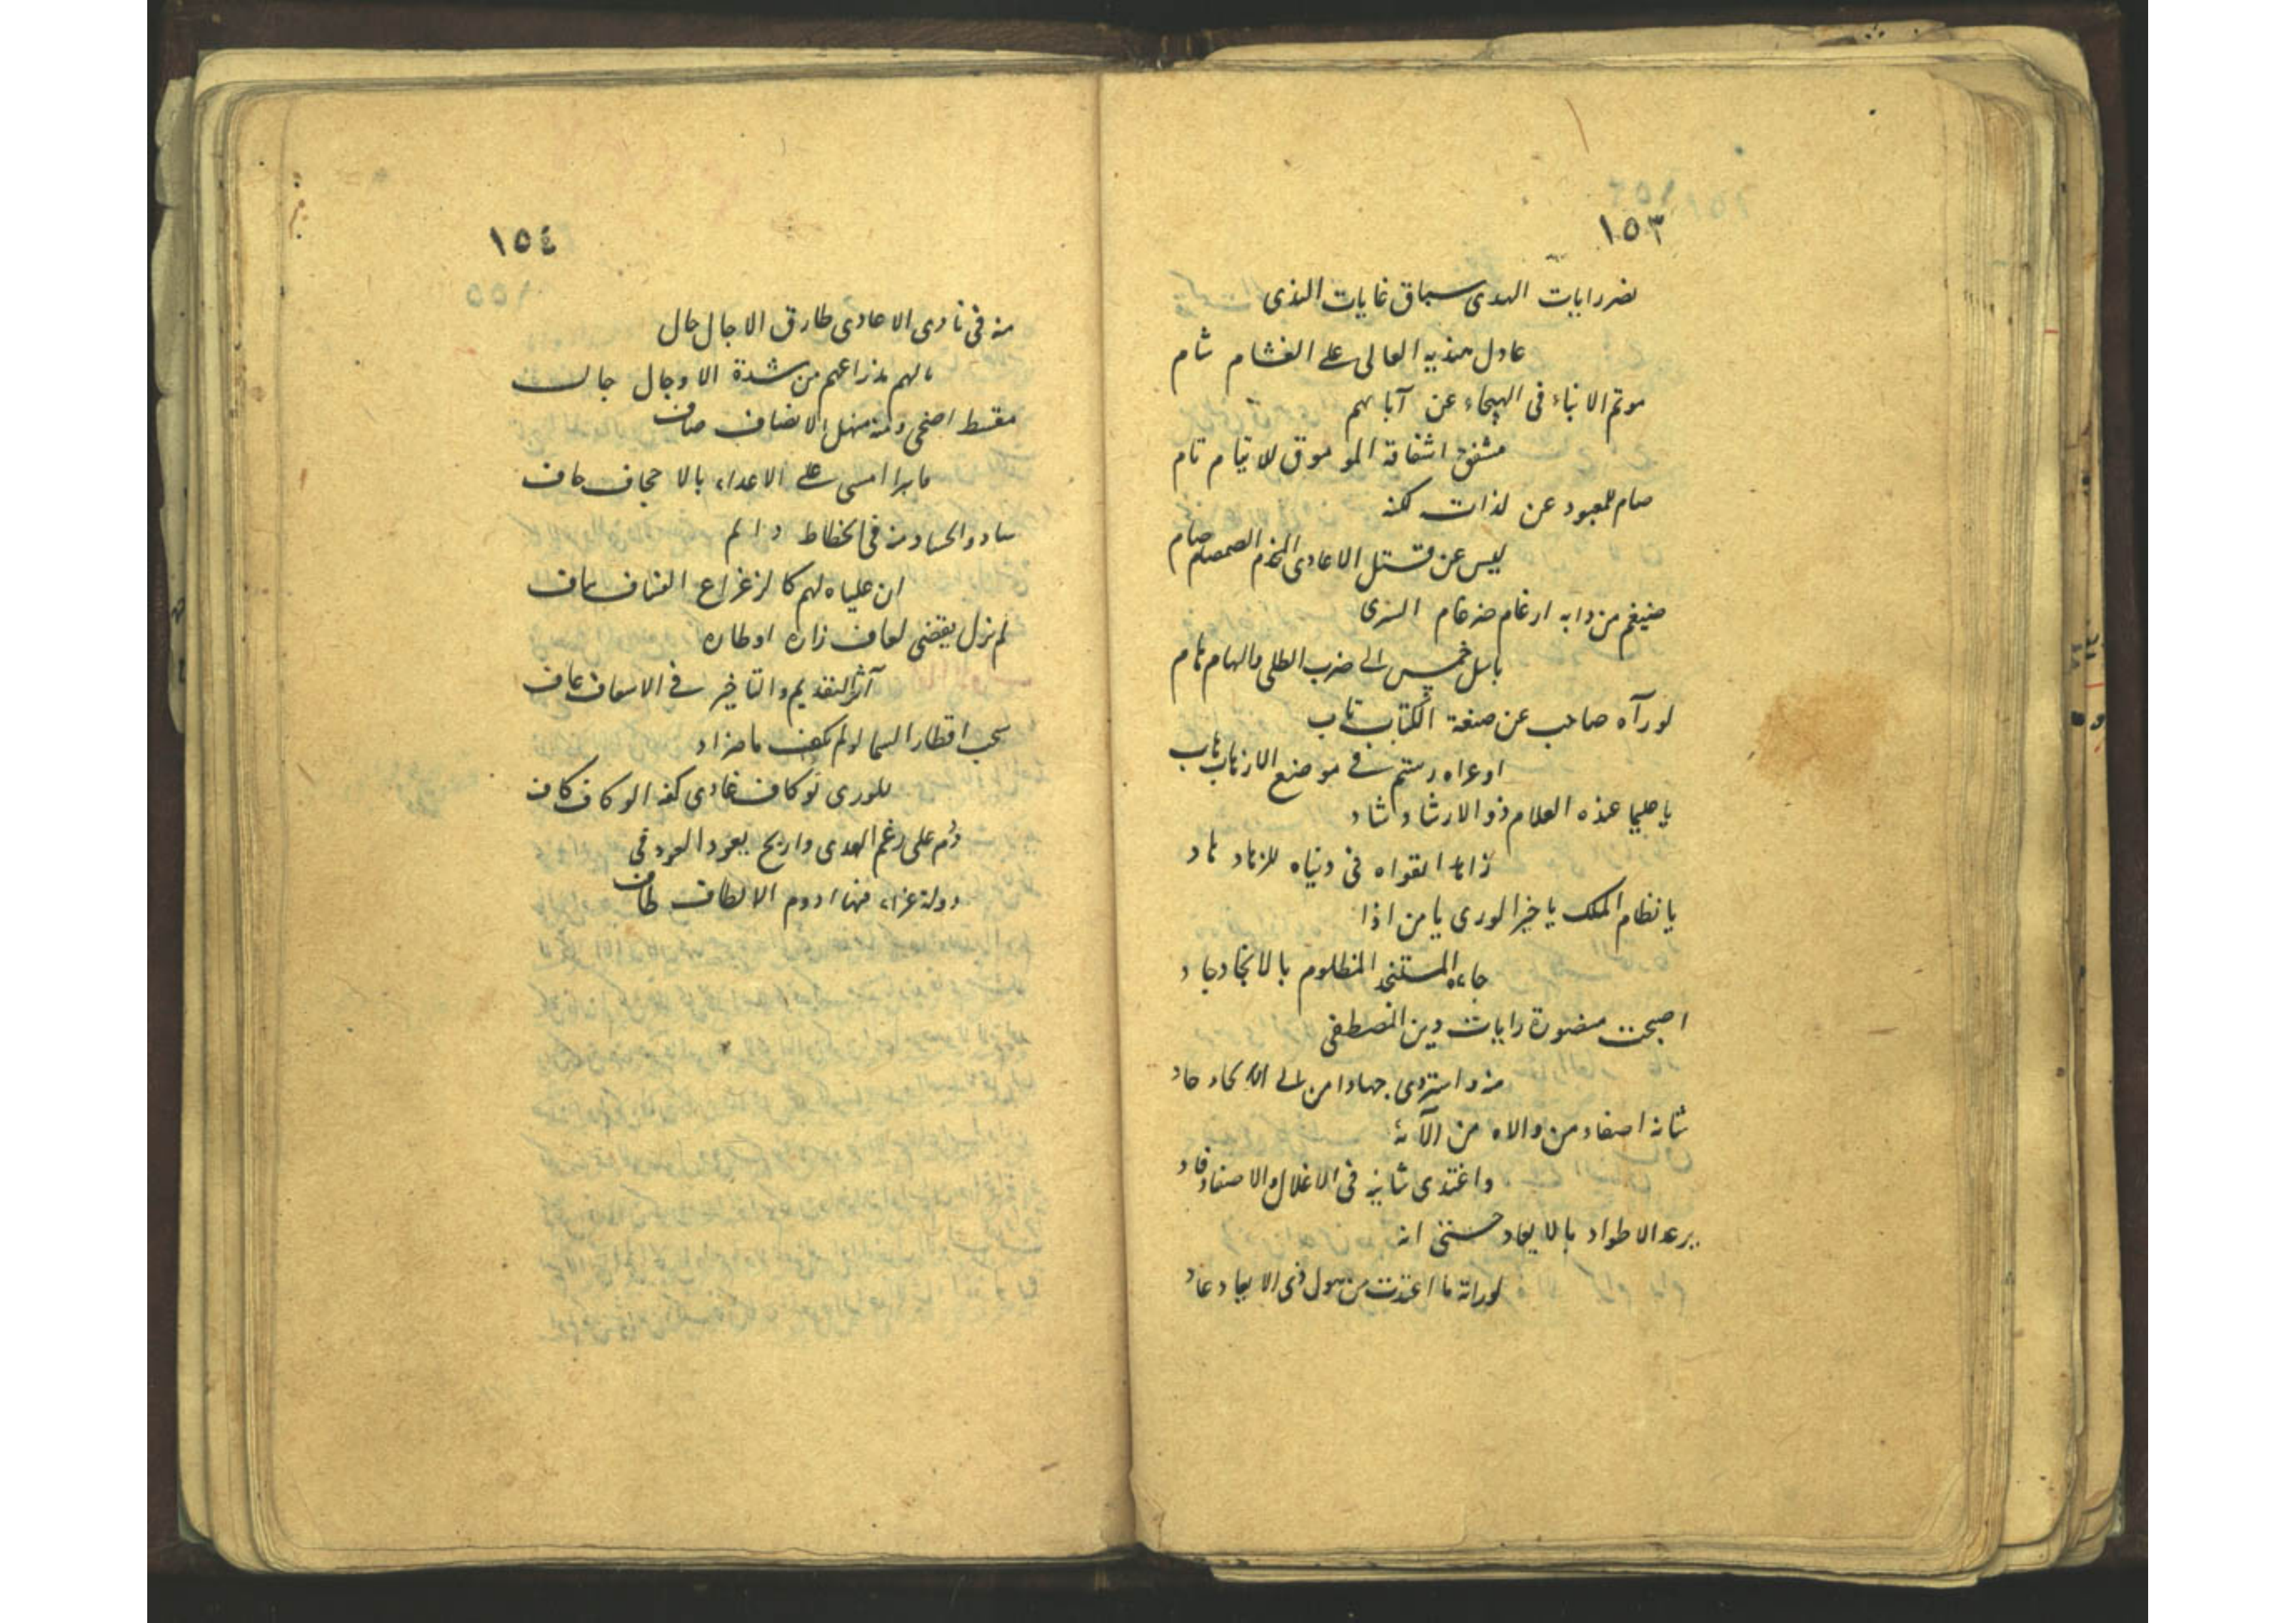 ١٥٣
نصر رايات الهدى سباق غايات الندى
عادل هنديه العالى على الغشام شام
موتم الابناء فى الهيجاء عن آبائهم
مشفق اشفاقة الموموق للايتام تام
صام للمعبود عن لذات لكنه
ليس عن قتل الاعادى المخذم الصمصام صام
ضيغم من دابه ارغام ضرغام الشرى
باسل خمس الى ضرب الطلى والهام هام
لورآه صاحب عن صنعة الكتاب تاب
اوعراه رستم فى موضع الارهاب هاب
يا عليما عنده العلام ذو الارشاد شاد
زاهدا تقواه فى دنياه للزهاد هاد
يا نظام الملك يا خير الورى يا من اذا
جاءه المستنجد المظلوم بالانجاد جاد
اصبحت منصورة رايات دين المصطفى
منه واستردى جهادا من الى الالحاد حاد
شانه اصفاد من والاه من آلائه
واغتدى شانيه فى الاغلال والاصفاد فاد
يرعد الاطواد بالايعاد حتى انه
لوراته ما اعتدت من هول ذى الايعاد عاد
١٥٤
منه فى نادى الاعادى طارق الاجال جال
مالهم مذراعهم من شدة الاوجال جال
مقسط اضحى ومنه منهل الانصاف صاف
مابرا امسى على الاعداء بالاحجاف حاف
ساد والحساد منه فى انحطاط دائم
ان علياه لهم كالزعزاع النساف ساف
لم يزل يقضى لعاف زاره اوطاره
آثر التقديم والتاخير فى الاسعاف عاف
سحب اقطار السما لولم يكف ماضر اذ
للورى توكاف غادى كفه الوكاف كاف
دم على رغم العدى واربح بعود العود فى
دولة غراء فيها ادوم الالطاف طاف